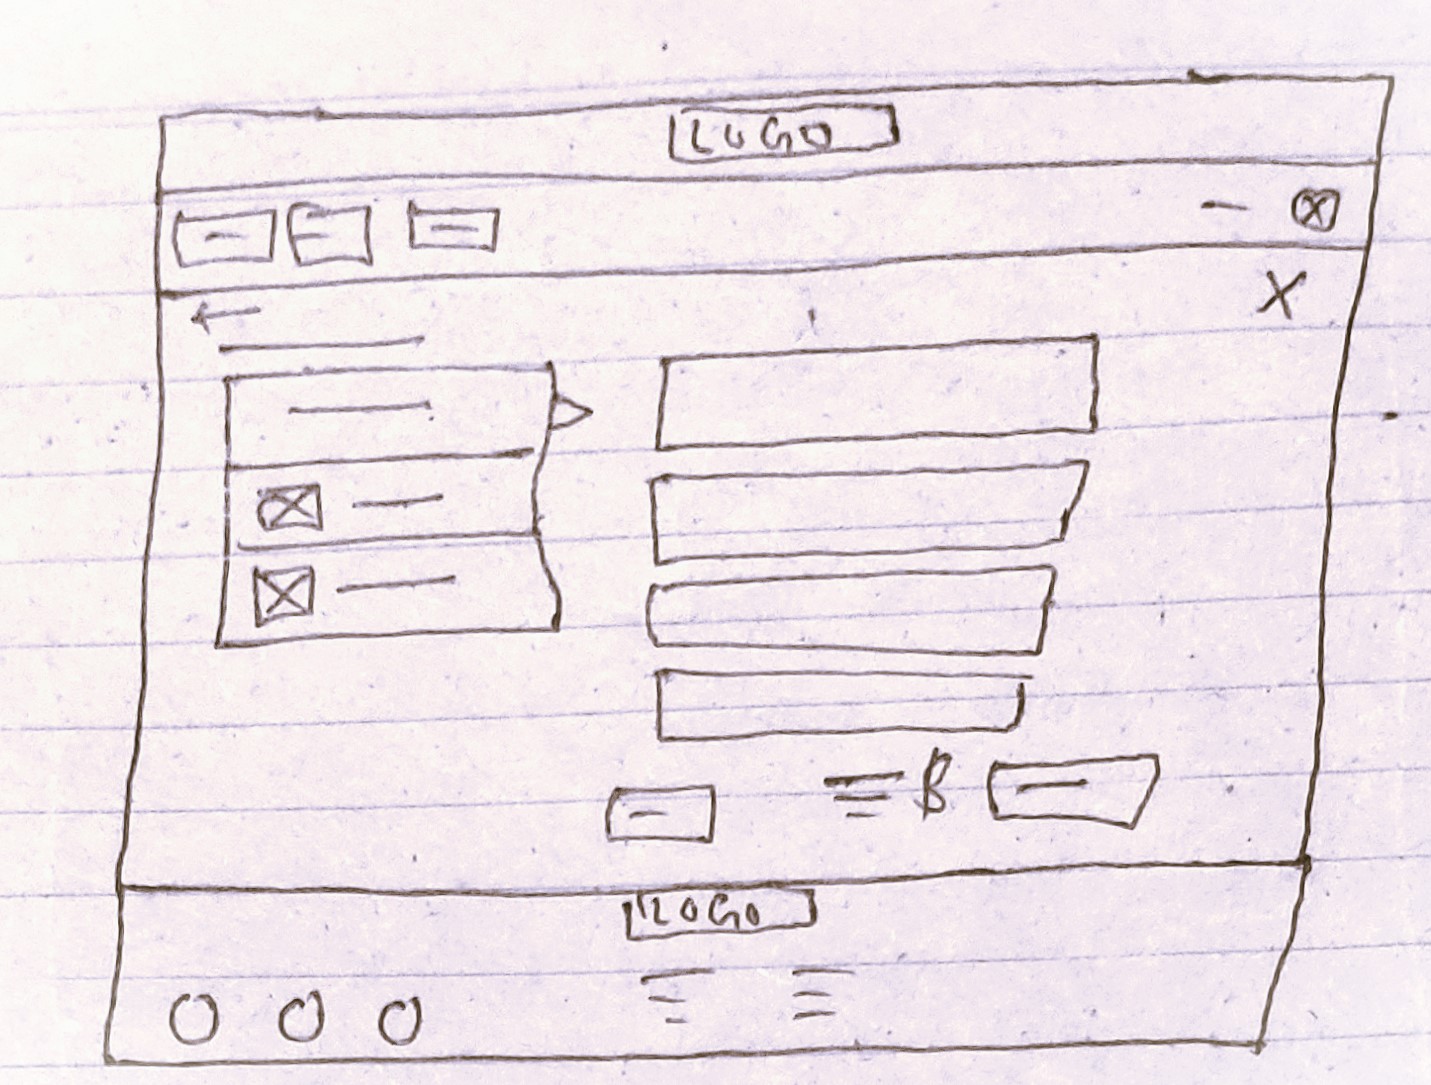 LOGO
B
LOGO